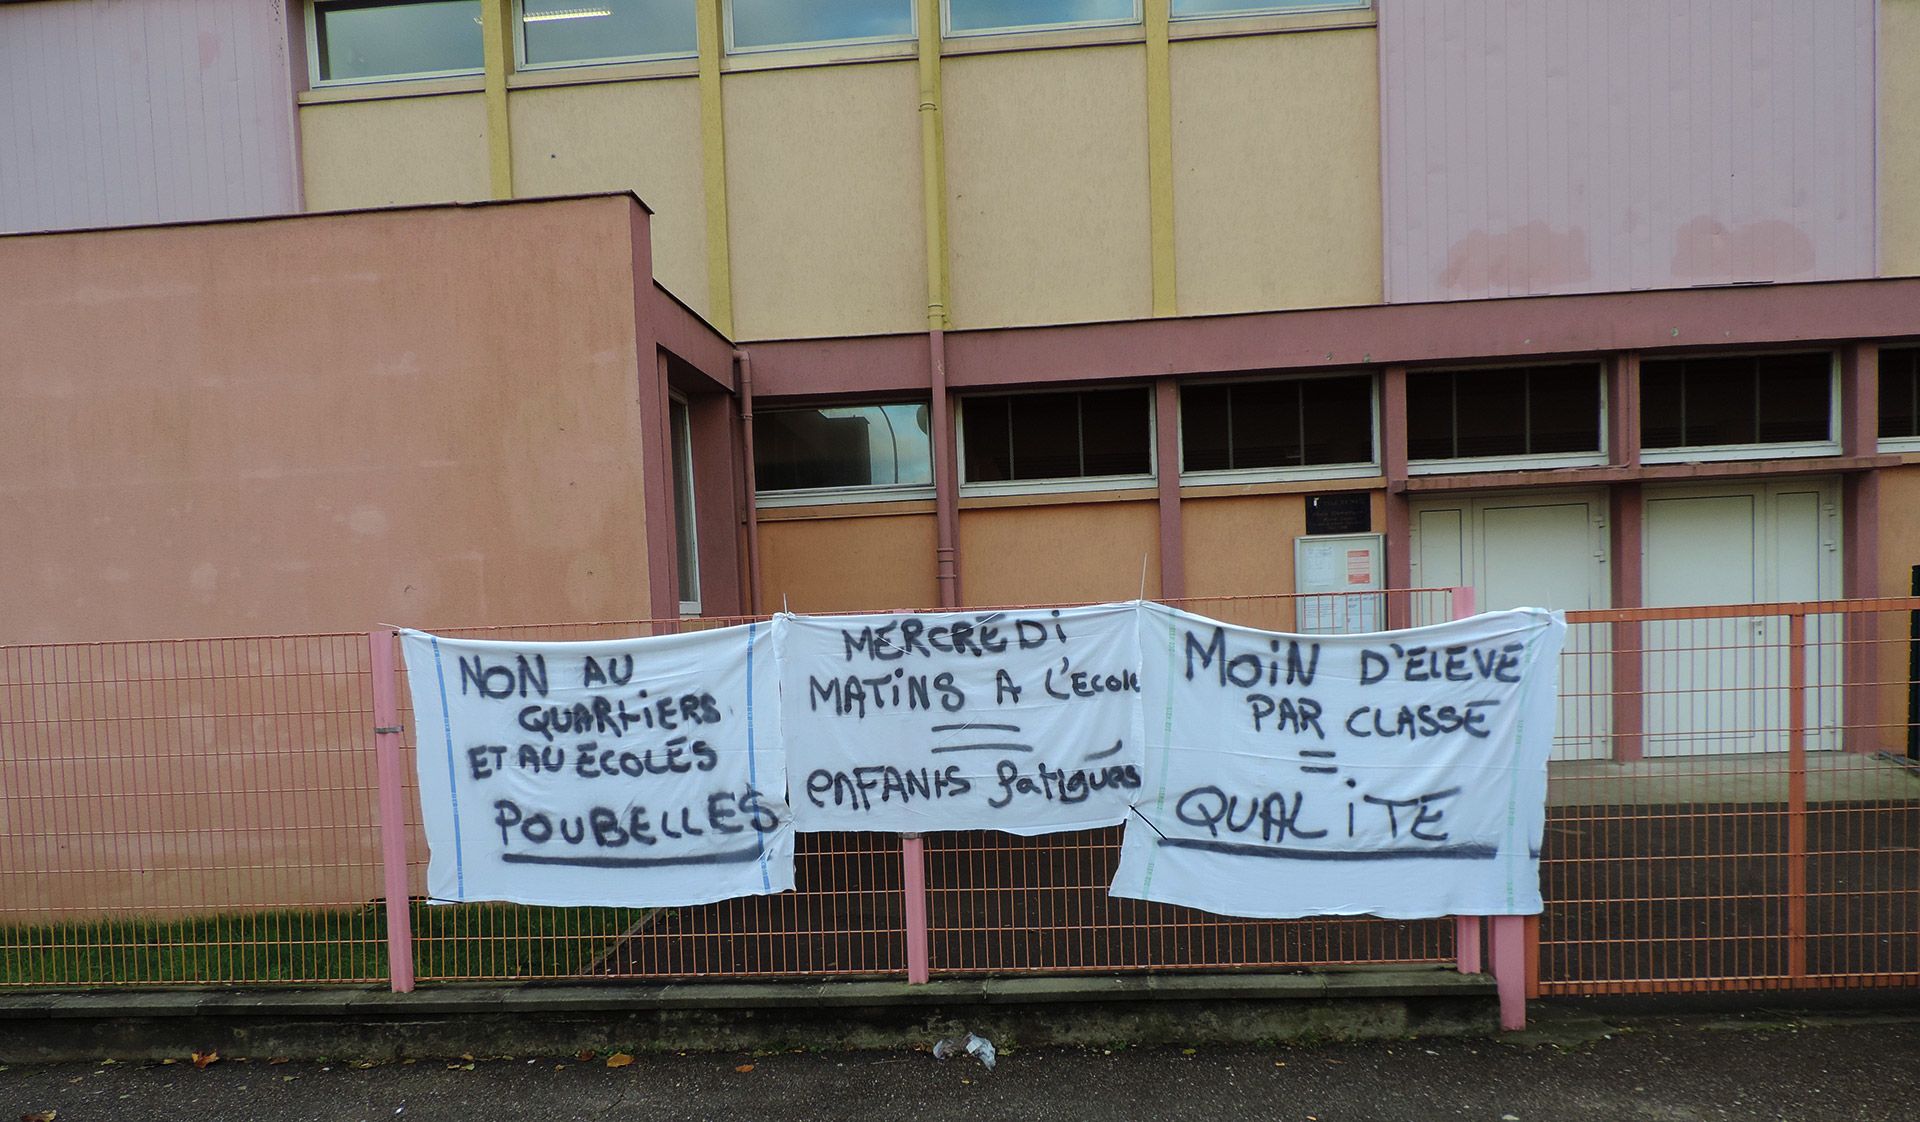 NON AU
QUARTIERS
ET AU ECOLES
POUBELLES
MERCREDI
MATINS A L'ECOLE
=
ENFANTS fatigués
MOIN D'ELEVE
PAR CLASSE
=
QUALITE